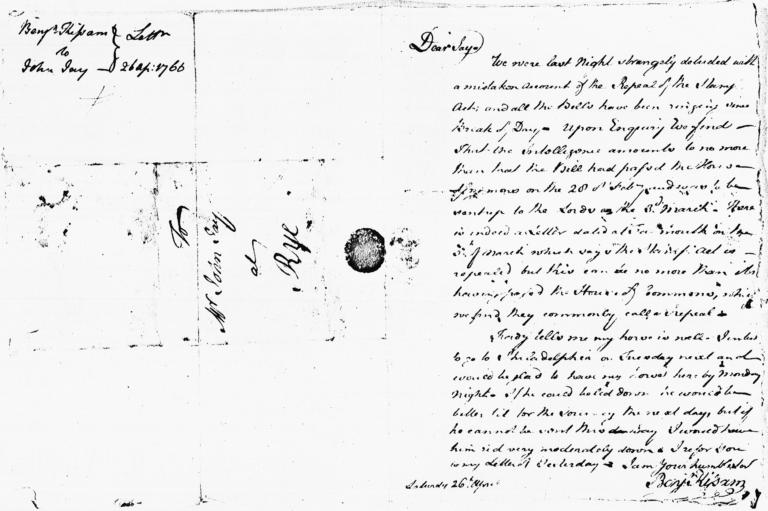 Benjn. Kissam
to
John Jay
Letter
26 Ap: 1766
To
Mr John Jay
at
Rye
Dear Jay
We were last Night strangely deluded with
a mistaken account of the Repeal of the Stamp
Act; and all the Bells have been ringing since
Break of Day. Upon Enquiry We find
that the intelligence amounts to no more
than that the Bill had passed the House
of Commons on the 28 of Feby. and was to be
sent up to the Lords on the 3d March. There
is indeed a Letter dated at Falmouth on the
5 of March which says the Stamp Act is
repealed but this can be no more than its
having passed the House of Commons, which
we find they commonly call a repeal.
tells me my horse is well. I intend
to go to Philadelphia on Tuesday next and
would be glad to have my horse here by Monday
Night. If he could be led down he would be
better fit for the Journey the next day, but if
he cannot be sent this way I would have
him rid very moderately down. I refer you
to my Letter of Yesterday. I am Your humble Servt
Benjn. Kissam
Saturday 26th. April